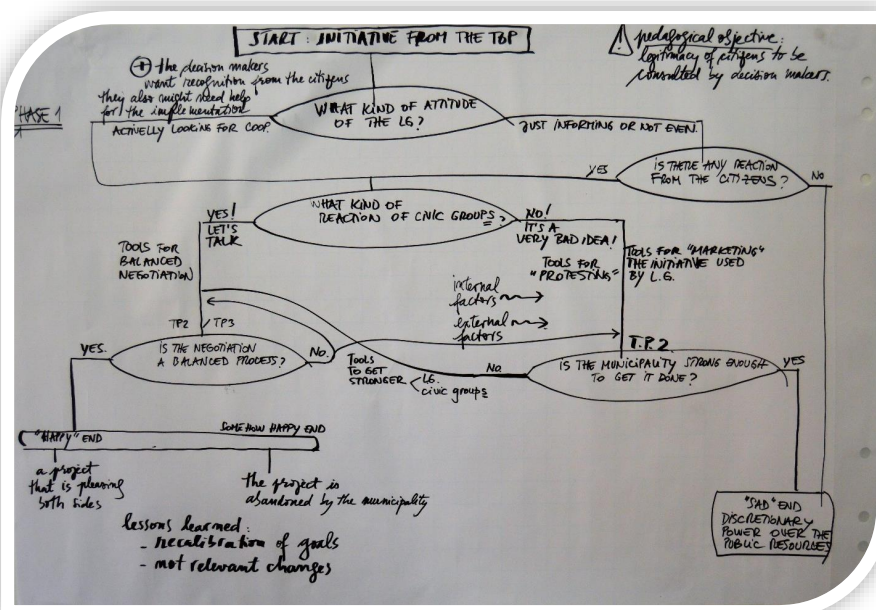 START: INITIATIVE FROM THE TOP
pedagogical objective:
legitimacy of citizens to be
consulted by decision makers.
+ the decision makers
want recognition from the citizens
they also might need help
for the implementation
PHASE 1
WHAT KIND OF ATTITUDE
OF THE LG?
ACTIVELLY LOOKING FOR COOP.
JUST INFORMING OR NOT EVEN.
IS THERE ANY REACTION
FROM THE CITIZENS?
YES
NO
WHAT KIND OF
REACTION OF CIVIC GROUPS?
YES!
LET'S
TALK
NO!
IT'S A
VERY BAD IDEA!
TOOLS FOR
BALANCED
NEGOTIATION
TOOLS FOR
"PROTESTING"
TOOLS FOR "MARKETING"
THE INITIATIVE USED
BY L.G.
internal
factors
external
factors
TP2 / TP3
T.P.2
IS THE NEGOTIATION
A BALANCED PROCESS?
YES.
No.
TOOLS
TO GET
STRONGER
LG.
civic groups
No
IS THE MUNICIPALITY STRONG ENOUGH
TO GET IT DONE?
YES
"HAPPY" END
SOMEHOW HAPPY END
a project
that is pleasing
both sides
the project is
abandoned by the municipality
"SAD" END
DISCRETIONARY
POWER OVER THE
PUBLIC RESOURCES
lessons learned:
- recalibration of goals
- not relevant changes